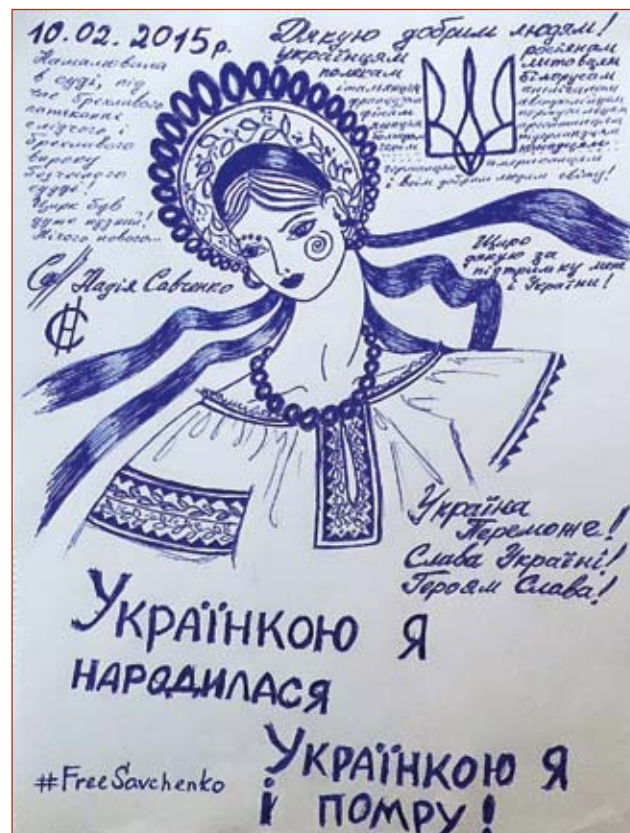 10.02.2015р.
Намалювала
в суді, під
час брехливого
потакання
слідчого, і
брехливого
вироку
безчесного
судді!
Цирк був
дуже нудний!
Нічого нового...
Надія Савченко
СН
Дякую добрим людям!
українцям
полякам
італійцям
французам
фінам
німцям
болгарам
чехам
росіянам
литовцям
білорусам
англічанам
нідерландцям
канадцям
американцям
і всім добрим людям світу!
Щиро
дякую за
підтримку мене
і України!
Україна
Переможе!
Слава Україні!
Героям Слава!
Українкою я
народилася
Українкою я
і помру!
#FreeSavchenko